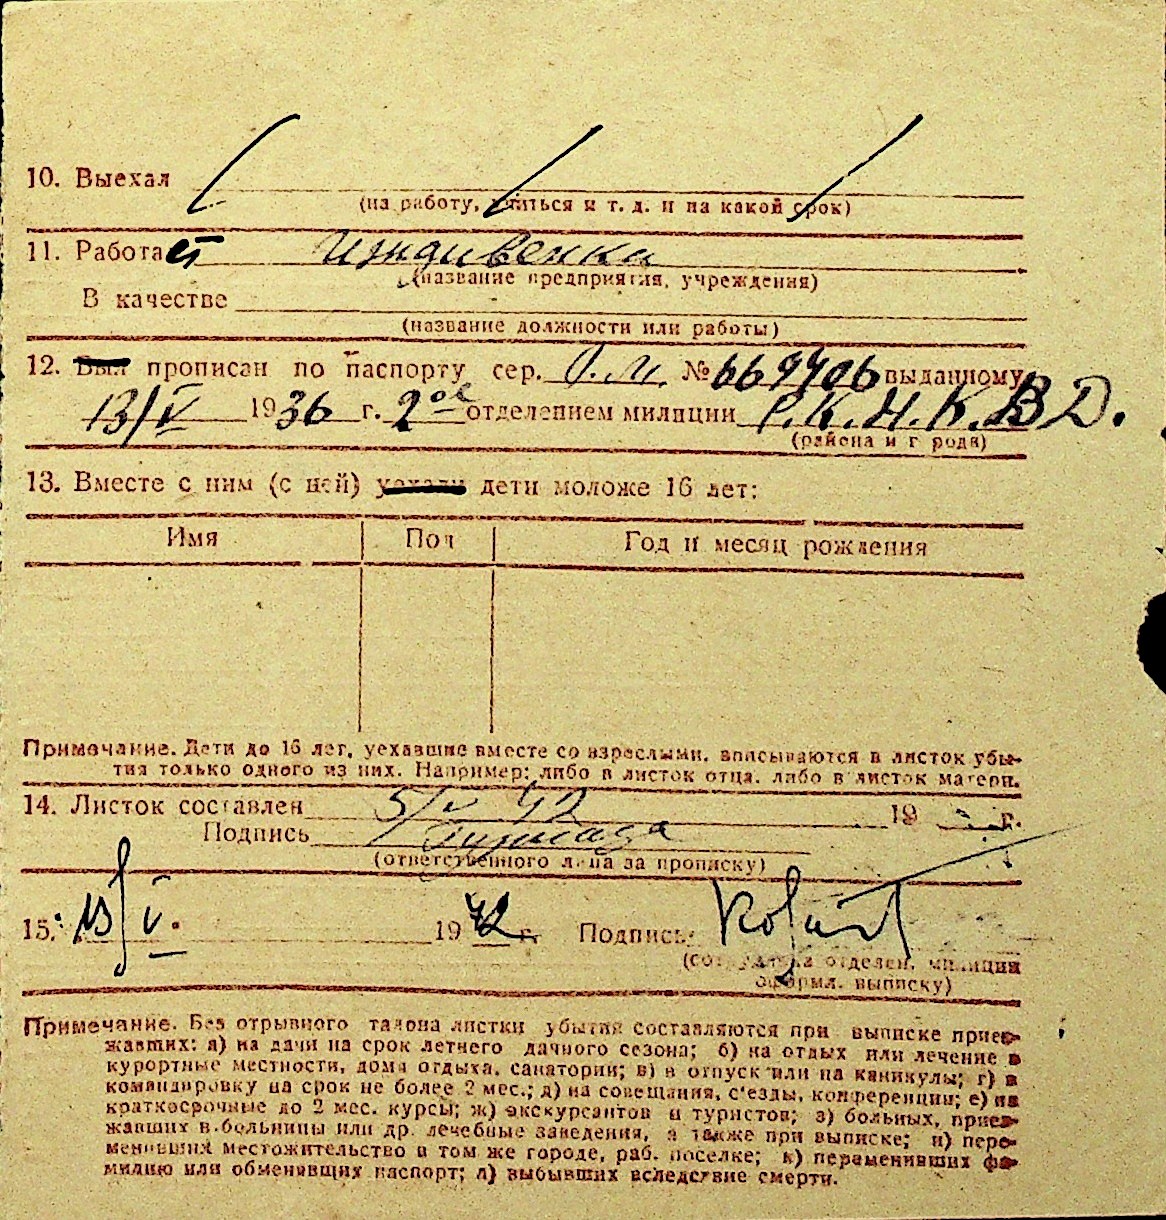 10. Выехал
(на работу, учиться и т. д. и на какой срок)
11. Работает иждивенка
(название предприятия, учреждения)
В качестве
(название должности или работы)
12. Был прописан по паспорту сер. Л.М. № 669406 выданному
13/V 1936 г. 2ое отделением милиции Р.К.Н.К.В.Д.
(района и города)
13. Вместе с ним (с ней) уехали дети моложе 16 лет:
Имя Пол Год и месяц рождения
Примечание. Дети до 16 лет, уехавшие вместе со взрослыми, вписываются в листок убы-
тия только одного из них. Например: либо в листок отца, либо в листок матери.
14. Листок составлен 5/V 42 19 г.
Подпись
(ответственного лица за прописку)
15. 13/V. 1942 г. Подпись:
(сотрудника отделен. милиции
оформл. выписку)
Примечание. Без отрывного талона листки убытия составляются при выписке приез-
жавших: а) на дачи на срок летнего дачного сезона; б) на отдых или лечение в
курортные местности, дома отдыха, санатории; в) в отпуск или на каникулы; г) в
командировку на срок не более 2 мес.; д) на совещания, с'езды, конференции; е) на
краткосрочные до 2 мес. курсы; ж) экскурсантов и туристов; з) больных, приез-
жавших в больницы или др. лечебные заведения, а также при выписке; и) пере-
менивших местожительство в том же городе, раб. поселке; к) переменивших фа-
милию или обменявших паспорт; л) выбывших вследствие смерти.